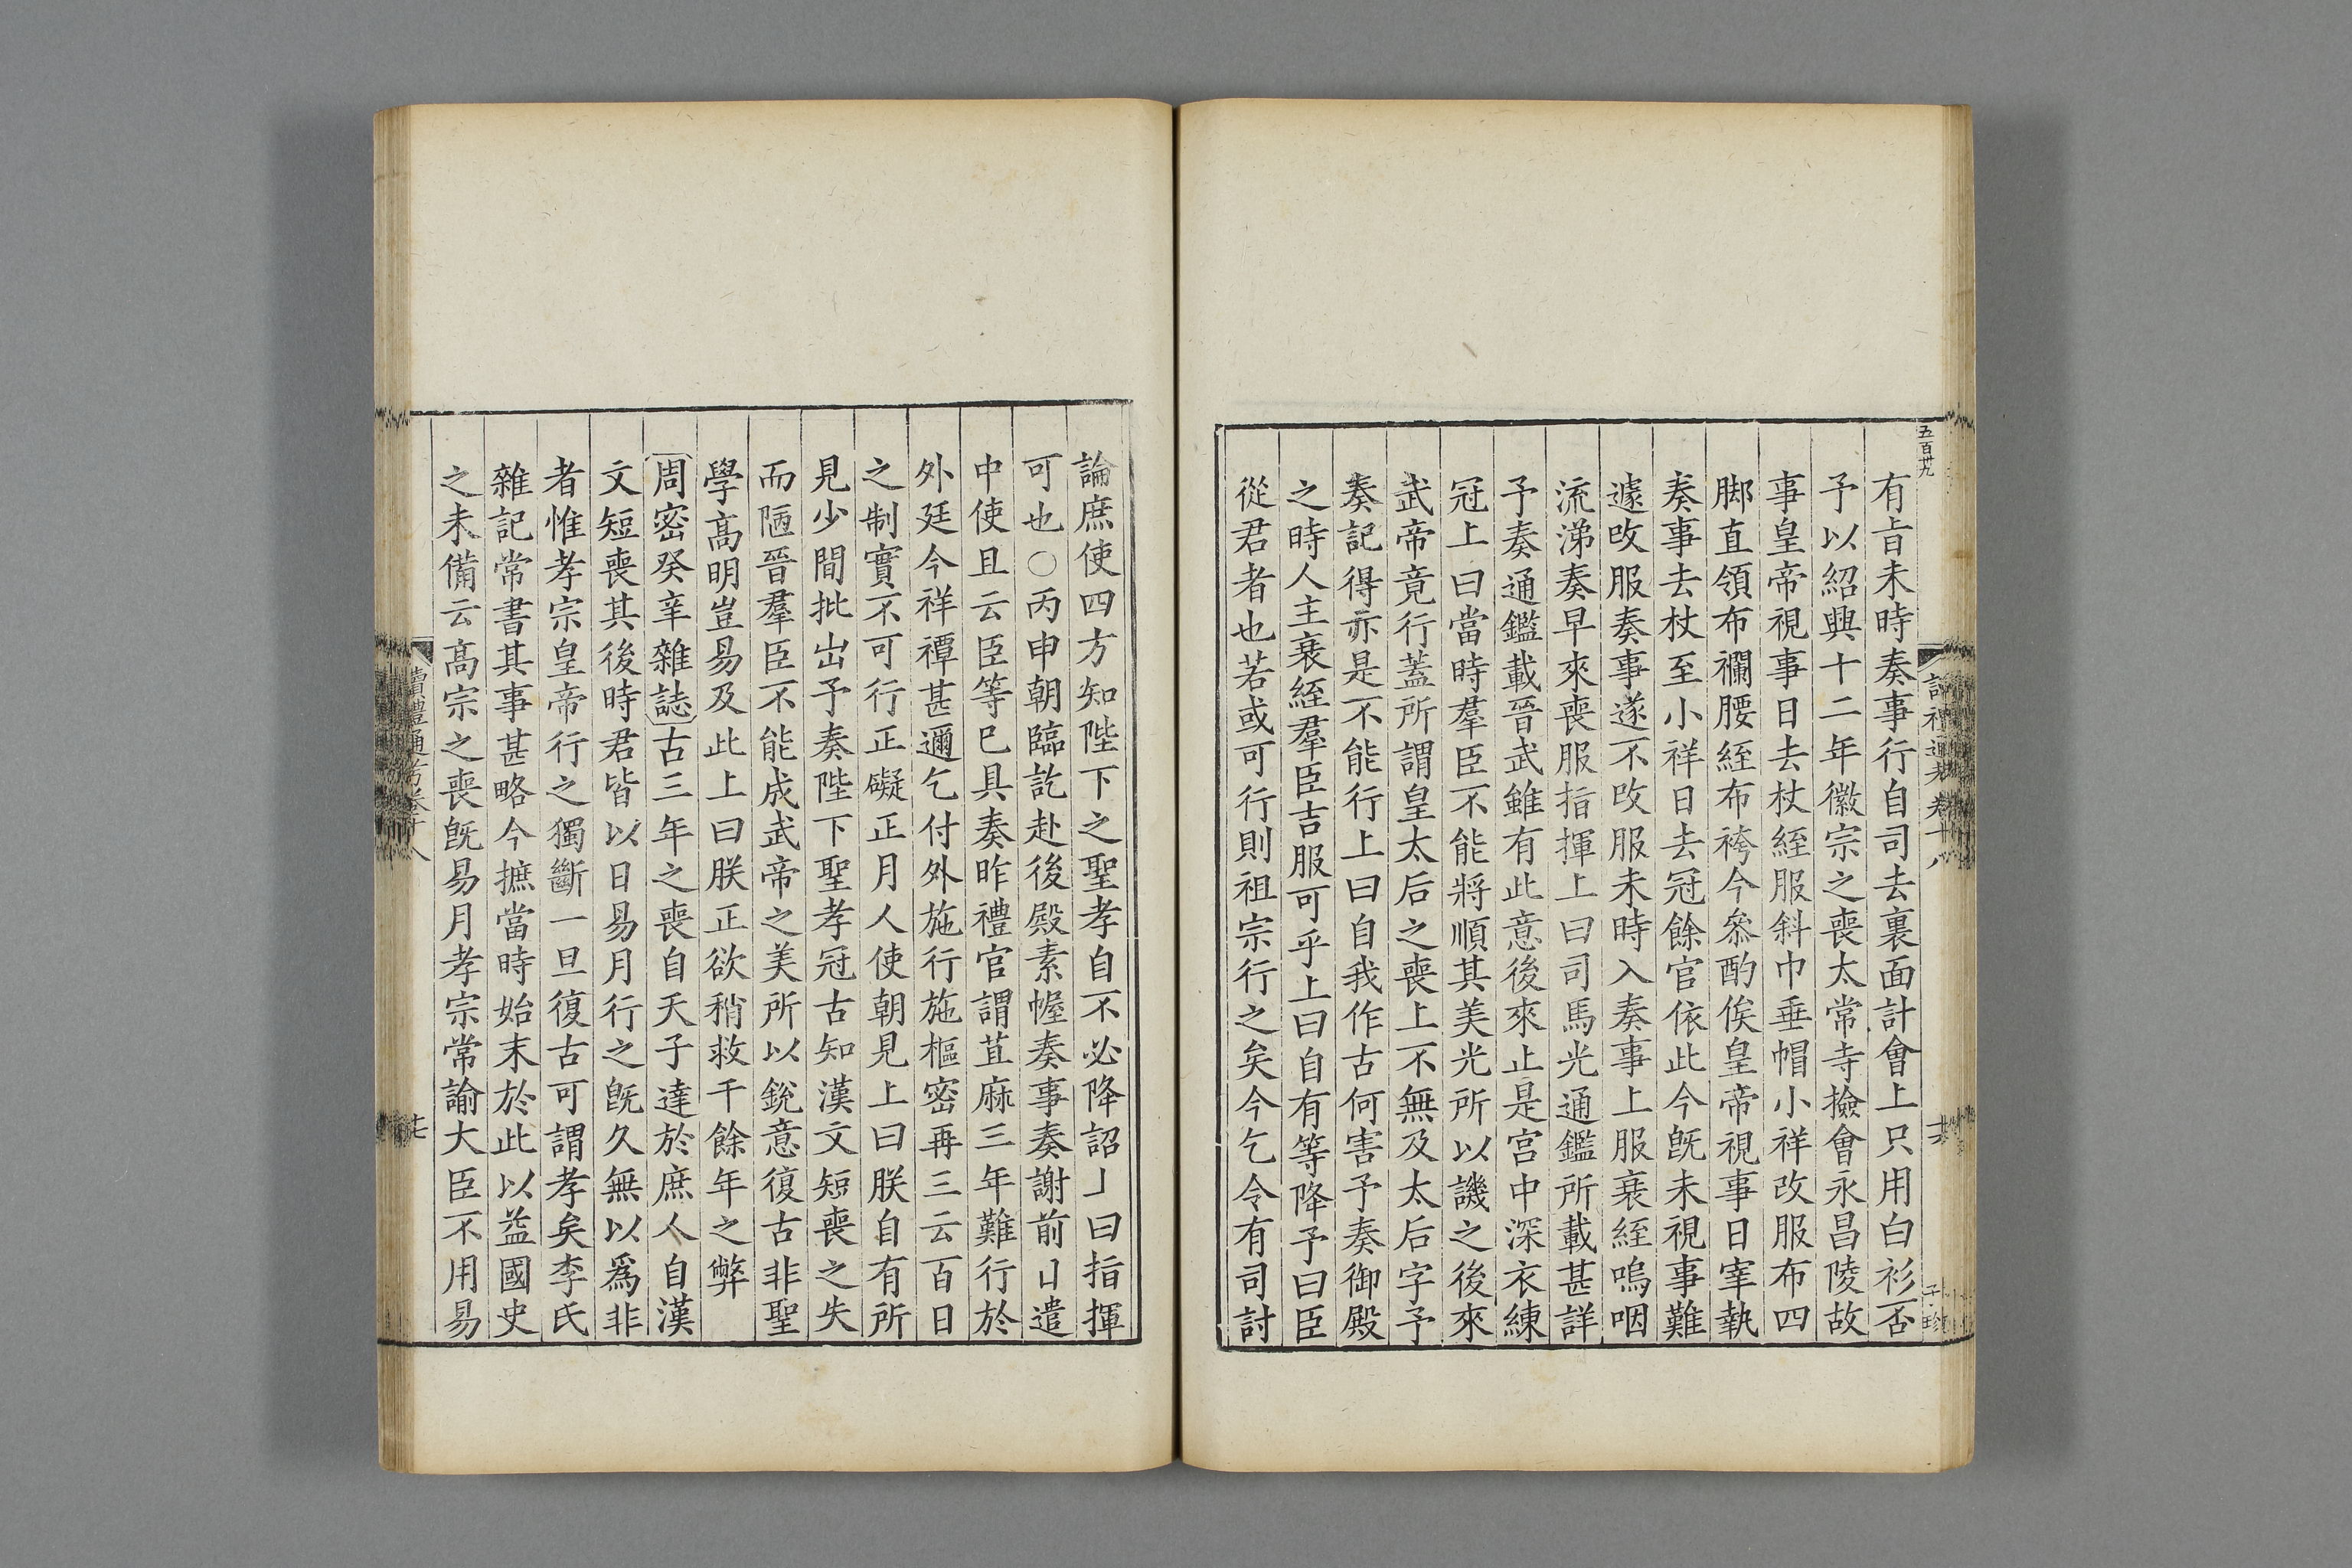 五百卅九
有旨未時奏事行自司去裏面計會上只用白衫否
予以紹興十二年徽宗之喪太常寺撿會永昌陵故
事皇帝視事日去杖絰服斜巾垂帽小祥改服布四
脚直領布襴腰絰布袴今叅酌俟皇帝視事日宰執
奏事去杖至小祥日去冠餘官依此今旣未視事難
遽改服奏事遂不改服未時入奏事上服衰絰嗚咽
流涕奏早來喪服指揮上曰司馬光通鑑所載甚詳
予奏通鑑載晉武雖有此意後來止是宫中深衣練
冠上曰當時羣臣不能將順其美光所以譏之後來
武帝竟行蓋所謂皇太后之喪上不無及太后字予
奏記得亦是不能行上曰自我作古何害予奏御殿
之時人主衰絰羣臣吉服可乎上曰自有等降予曰臣
從君者也若或可行則祖宗行之矣今乞令有司討
論庶使四方知陛下之聖孝自不必降詔丄曰指揮
可也○丙申朝臨訖赴後殿素幄奏事奏謝前日遣
中使且云臣等已具奏昨禮官謂苴麻三年難行於
外廷今祥禫甚邇乞付外施行施樞密再三云百日
之制實不可行正礙正月人使朝見上曰朕自有所
見少間批出予奏陛下聖孝冠古知漢文短喪之失
而陋晉羣臣不能成武帝之美所以銳意復古非聖
學高明豈易及此上曰朕正欲稍救千餘年之弊
周密癸辛雜誌古三年之喪自天子達於庶人自漢
文短喪其後時君皆以日易月行之旣久無以爲非
者惟孝宗皇帝行之獨斷一旦復古可謂孝矣李氏
雜記常書其事甚略今摭當時始末於此以益國史
之未備云高宗之喪旣易月孝宗常諭大臣不用易
讀禮通考卷十八